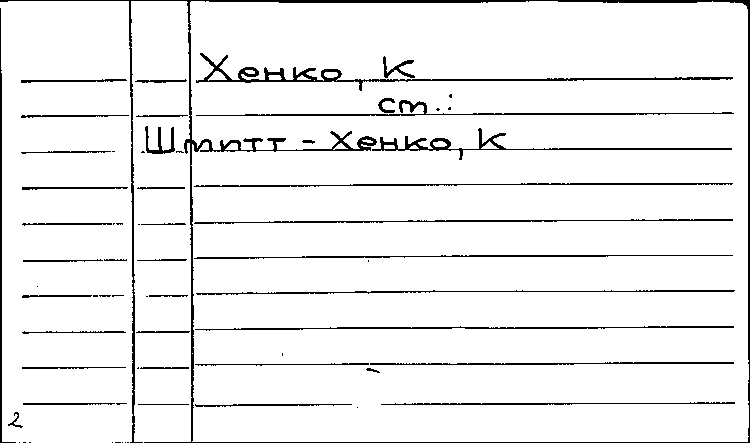 Хенко, К
ст.:
Шмитт - Хенко, К
2